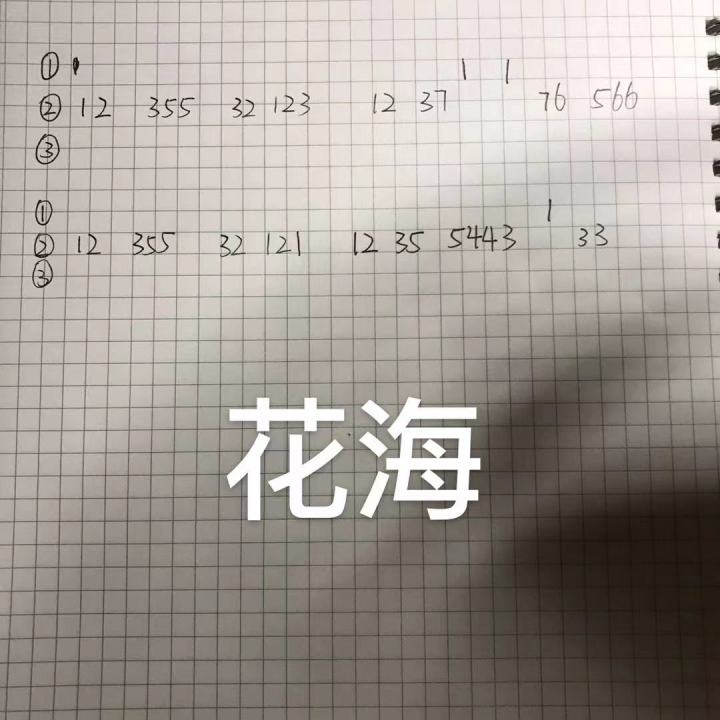 ① 1 1
② 12 355 32 123 12 37 76 566
③
① 1
② 12 355 32 121 12 35 5443 33
③
花海